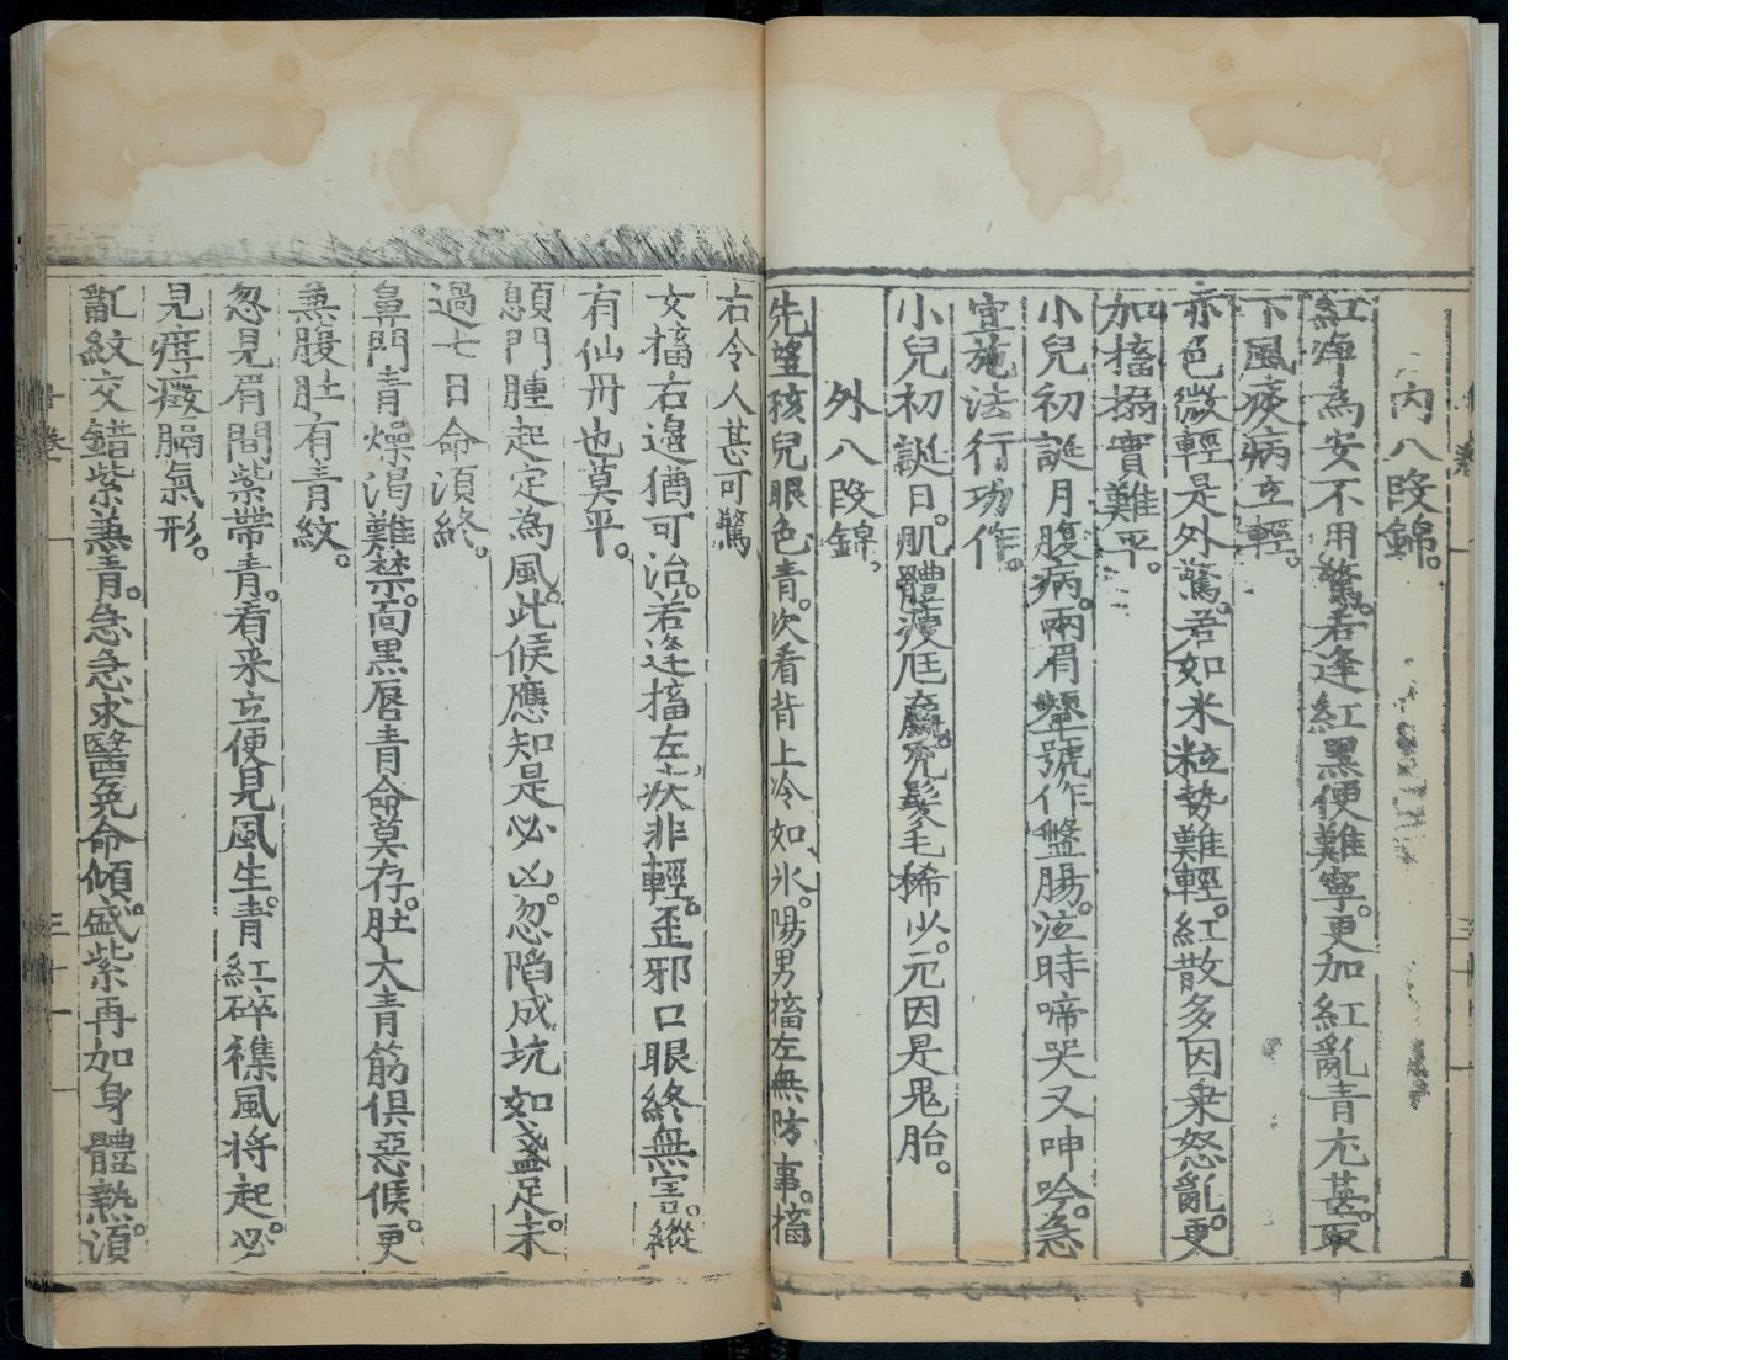 內八段錦。
紅淨為安不用驚。若逢紅黑便難寧。更加紅亂青尤甚。取
下風痰病立輕。
赤色微輕是外驚。若如米粒勢難輕。紅散多因乗怒亂。更
加搐搦實難平。
小兒初誕月腹病。兩眉顰號作盤腸。泣時啼哭又呻吟。急
宜施法行功作。
小兒初誕日。肌體瘦尫羸。禿髮毛稀少。元因是鬼胎。
外八段錦。
先望孩兒眼色青。次看背上冷如氷。陽男搐左無防事。搐
右令人甚可驚
女搐右邉猶可治。若逢搐左疾非輕。歪邪口眼終無害。縱
有仙丹也莫平。
顖門腫起定為風。此候應知是必凶。忽陷成坑如盞足。未
過七日命須終。
鼻門青燥渴難禁。面黒唇青命莫存。肚大青筋俱惡候。更
兼腹肚有青紋。
忽見眉間紫帶青。看来立便見風生。青紅碎襍風将起。必
見疳癥膈氣形。
亂紋交錯紫兼青。急急求醫免命傾。盛紫再加身體熱。須
卷
三十一